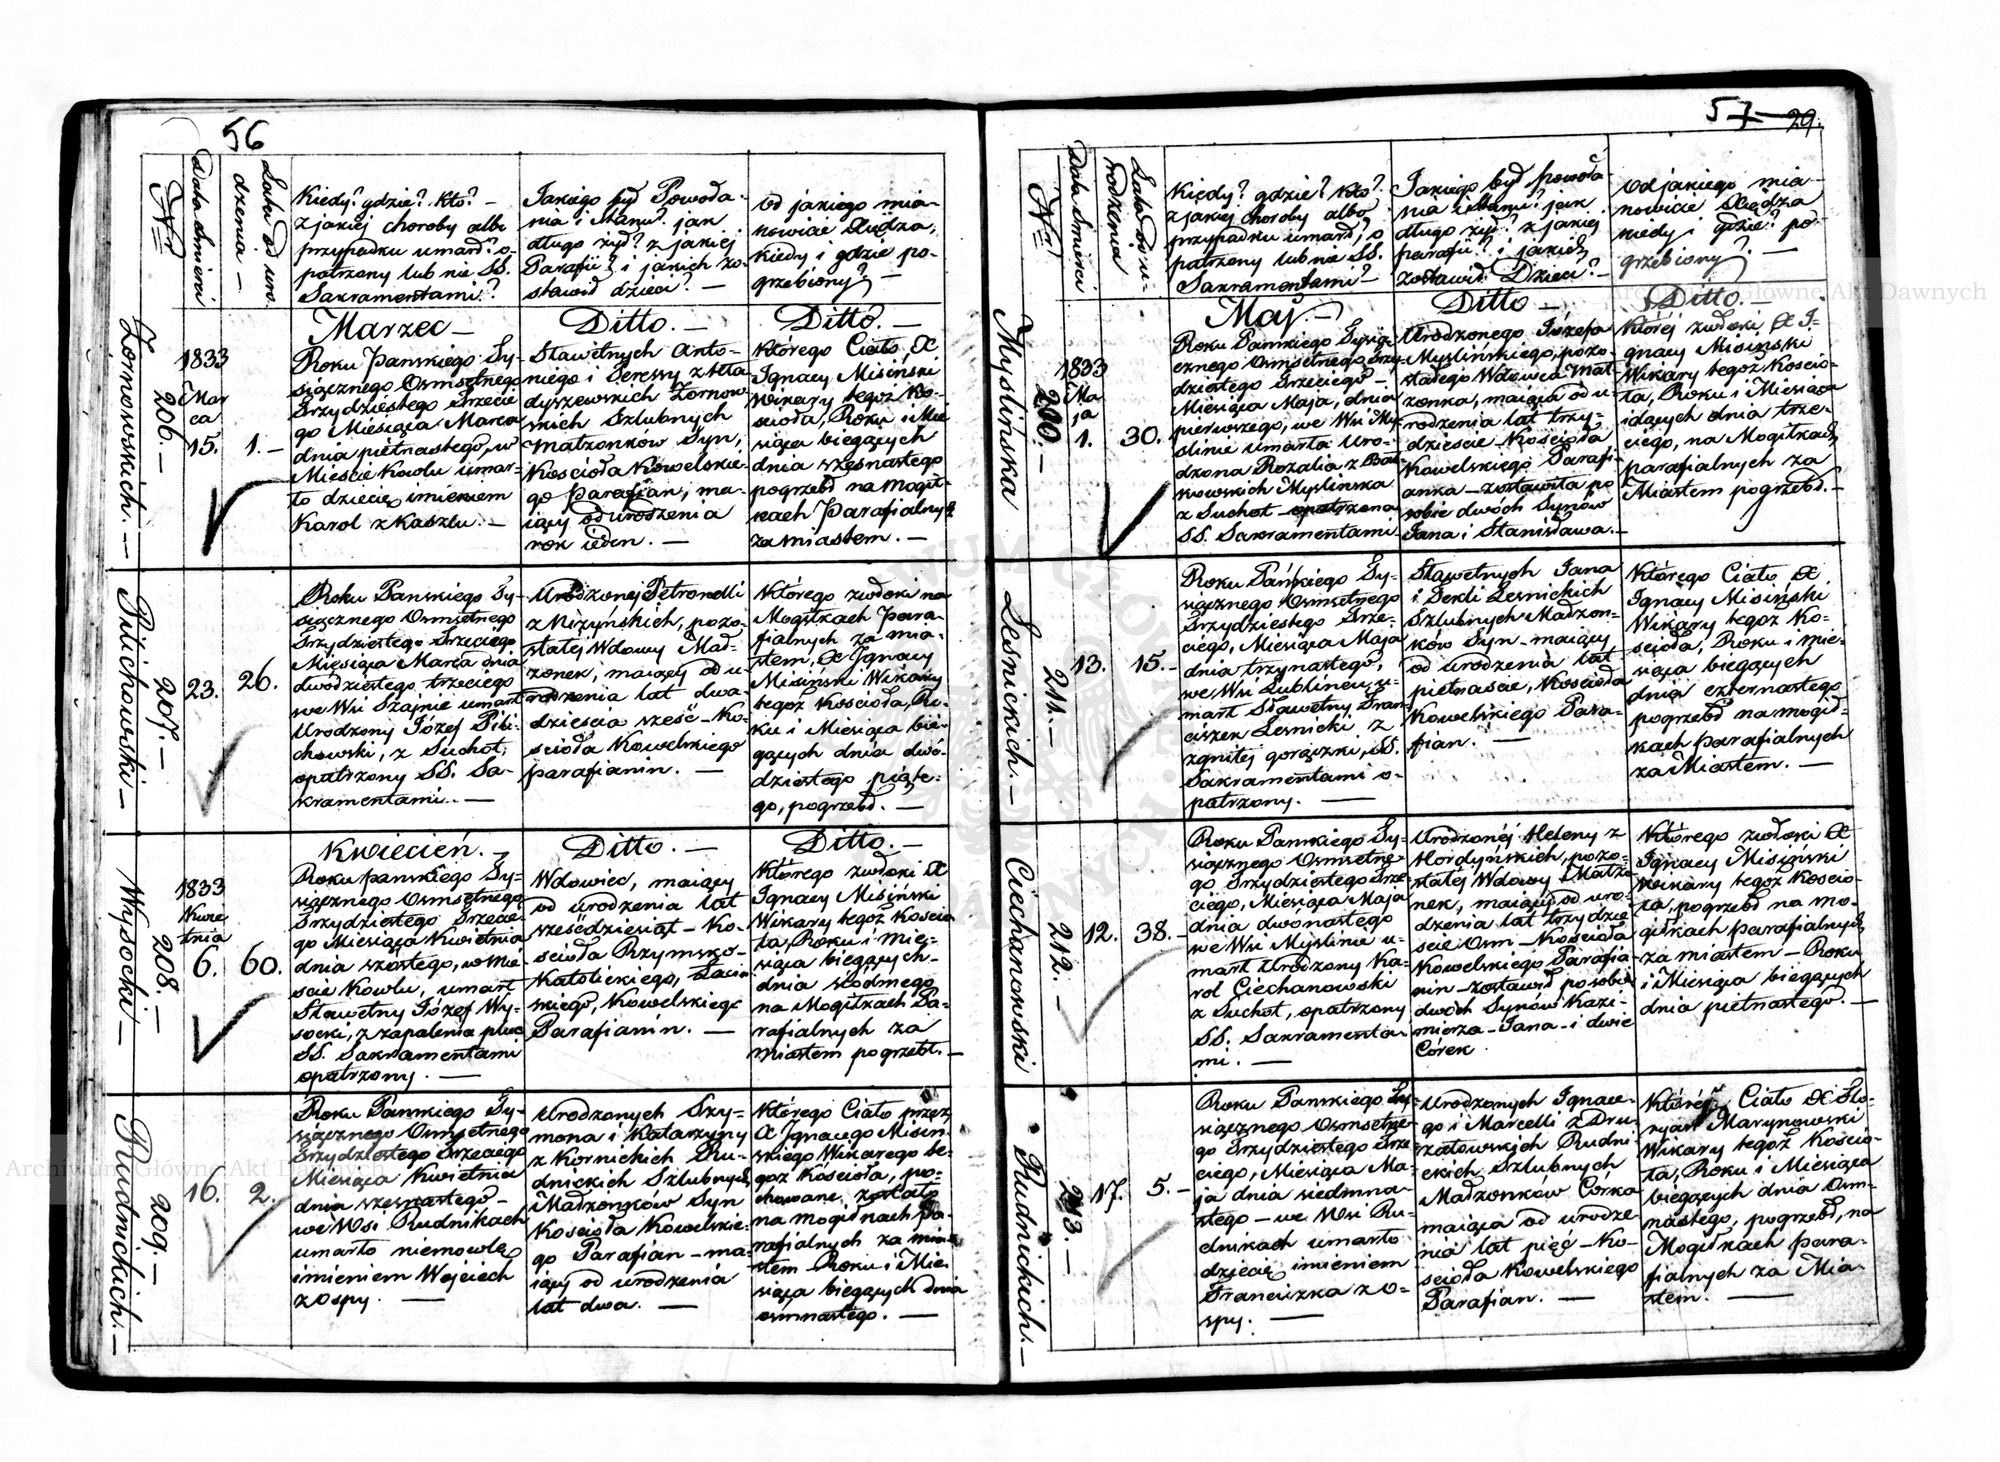 56
Nr
Data Śmierci
Lata od uro-
dzenia —
Kiedy? gdzie? Kto? —
z jakiej choroby albo
przypadku umarł? o-
patrzony lub nie SS.
Sakramentami?
Jakiego był Powoła-
nia i Stanu? jak
długo żył? z jakiej
Parafii? i jakich zo-
stawił dzieci? —
Od jakiego mia-
nowicie Xiędza,
kiedy i gdzie po-
grzebiony? —
Żornowskich. —
206. —
1833
Mar
ca
15.
1. —
Marzec —
Roku Pańskiego Ty-
siącznego Osmsetnego
Trzydziestego Trzecie
go Miesiąca Marca
dnia piętnastego, w
Mieście Kowlu umar-
ło dziecię imieniem
Karol z Kaszlu. —
Ditto. —
Sławetnych Anto-
niego i Teressy z Wła
dyszewskich Żornow
skich Szlubnych
Małżonków Syn,
Kościoła Kowelskie-
go Parafian, ma-
iący od urodzenia
rok ieden. —
Ditto. —
Którego Ciało, X
Ignacy Misiński
Wikary tegoż Ko-
ścioła, Roku i Mie
siąca bieżących
dnia szesnastego
pogrzebł na Mogił-
kach Parafialnych
za miastem. —
Pilichowski —
207. —
23.
26.
Roku Pańskiego Ty-
siącznego Osmsetnego
Trzydziestego Trzeciego
Miesiąca Marca dnia
dwodziestego trzeciego
we Wsi Szajnie umarł
Urodzony Józef Pili-
chowski, z Suchot,
opatrzony SS. Sa-
kramentami. —
Urodzonej Petronelli
z Miżyńskich, pozo-
stałej Wdowy Mał-
żonek, maiący od u
rodzenia lat dwa-
dzieścia sześć — Ko-
ścioła Kowelskiego
parafianin. —
Którego zwłoki na
Mogiłkach Para-
fialnych za mia-
stem, X Ignacy
Misiński Wikary
tegoż Kościoła, Ro-
ku i Miesiąca bie-
żących dnia dwó-
dziestego piąte-
go, pogrzebł. —
Wysocki —
208. —
1833
Kwie
tnia
6.
60.
Kwiecień. —
Roku pańskiego Ty-
siącznego Osmsetnego
Trzydziestego Trzecie-
go Miesiąca Kwietnia
dnia szóstego, w Mie
ście Kowlu, umarł
Sławetny Józef Wy-
socki, z zapalenia płuc
SS. Sakramentami
opatrzony. —
Ditto. —
Wdowiec, maiący
od urodzenia lat
sześćdziesiąt — Ko-
ścioła Rzymsko-
Katolickiego, Łaciń
skiego, Kowelskiego
Parafianin. —
Ditto. —
Którego zwłoki X
Ignacy Misiński
Wikary tegoż Kościo
ła, Roku i Mie-
siąca bieżących
dnia siódmego
na Mogiłkach Pa-
rafialnych za
miastem pogrzebł. —
Rudnickich. —
209. —
16.
2.
Roku Pańskiego Ty-
siącznego Osmsetnego
Trzydziestego Trzeciego
Miesiąca Kwietnia
dnia szesnastego —
we Wsi Rudnikach
umarło niemowlę
imieniem Wojciech
z ospy. —
Urodzonych Szy-
mona i Katarzyny
z Kornickich Ru-
dnickich Szlubnych
Małżonków Syn
Kościoła Kowelskie-
go Parafian — ma-
iący od urodzenia
lat dwa. —
Którego Ciało przez
X Ignacego Misiń-
skiego Wikarego te-
goż Kościoła, po-
chowane zostało
na mogiłkach pa-
rafialnych za mia-
stem Roku i Mie
siąca bieżących dnia
osmnastego. —
57 29.
Nr
Data Śmierci
Lata od u-
rodzenia
Kiedy? gdzie? Kto?
z jakiej choroby albo
przypadku umarł? o
patrzony lub nie SS.
Sakramentami?
Jakiego był powoła-
nia i stanu? jak
długo żył? z jakiej
parafii? i jakich
zostawił Dzieci? —
Od jakiego mia-
nowicie Xiędza
kiedy i gdzie po-
grzebiony? —
Myslińska
200. —
1833
Ma
ja
1.
30.
Maj —
Roku Pańskiego Tysią-
cznego Osmsetnego Trzy-
dziestego Trzeciego —
Miesiąca Maja, dnia
pierwszego, we Wsi My
slinie umarła Uro-
dzona Rozalia z Bał-
kowskich Myslińska
z Suchot — opatrzona
SS. Sakramentami
Ditto —
Urodzonego Józefa
Myslińskiego, pozo-
stałego Wdowca Mał-
żonka, maiąca od u-
rodzenia lat trzy-
dzieście — Kościoła
Kowelskiego Parafi-
anka — zostawiła po
sobie dwóch Synów
Jana i Stanisława. —
Ditto. —
Której zwłoki, X I-
gnacy Misiński
Wikary tegoż Kościo-
ła, Roku i Miesiąca
idących dnia trze-
ciego, na Mogiłkach
parafialnych za
Miastem pogrzebł. —
Lesnickich. —
211. —
13.
15. —
Roku Pańskiego Ty-
siącznego Osmsetnego
Trzydziestego Trze-
ciego, Miesiąca Maja
dnia trzynastego,
we Wsi Lublincu, u-
marł Sławetny Fran
ciszek Lesnicki z
zgniłej gorączki, SS.
Sakramentami o-
patrzony. —
Sławetnych Jana
i Tekli Lesnickich
Szlubnych Małżon-
ków Syn — maiący
od urodzenia lat
piętnaście, Kościoła
Kowelskiego Para-
fian. —
Którego Ciało, X
Ignacy Misiński
Wikary tegoż Ko-
ścioła, Roku i mie-
siąca bieżących
dnia czternastego
pogrzebł na mogił-
kach parafialnych
za Miastem. —
Ciechanowski
212. —
12.
38. —
Roku Pańskiego Ty-
siącznego Osmsetne-
go Trzydziestego Trze
ciego, Miesiąca Maja
dnia dwónastego
we Wsi Myslinie u-
marł Urodzony Ka-
rol Ciechanowski
z Suchot, opatrzony
SS. Sakramenta-
mi. —
Urodzonéj Heleny z
Hordyńskich, pozo-
stałéj Wdowy Małżo
nek, maiący od uro-
dzenia lat trzydzie
ście Osm — Kościoła
Kowelskiego Parafia-
nin — zostawił po sobie
dwóch Synów Kazi-
mierza — Jana — i dwie
Córek
Którego zwłoki X
Ignacy Misiński
Wikary tegoż Kościo-
ła, pogrzebł na mo-
giłkach parafialnych
za miastem — Roku
i Miesiąca bieżących
dnia piętnastego. —
Rudnickich. —
213. —
17.
5. —
Roku Pańskiego Ty-
siącznego Osmsetne-
go Trzydziestego Trze-
ciego, Miesiąca Ma-
ja dnia siedmna-
stego — we Wsi Ru-
dnikach umarło
dziecię imieniem
Franciszka z o-
spy. —
Urodzonych Ignace-
go i Marcelli z Dru-
żatowskich Rudni
ckich Szlubnych
Małżonków Córka
maiąca od urodze
nia lat pięć — Ko-
ścioła Kowelskiego
Parafian. —
Któréj Ciało X Flo-
ryan Marynowski
Wikary tegoż Kościo-
ła, Roku i Miesiąca
bieżących dnia Osm-
nastego, pogrzebł, na
Mogiłkach para-
fialnych za Mia-
stem. —
Archiwum Główne Akt Dawnych
Archiwum Główne Akt Dawnych